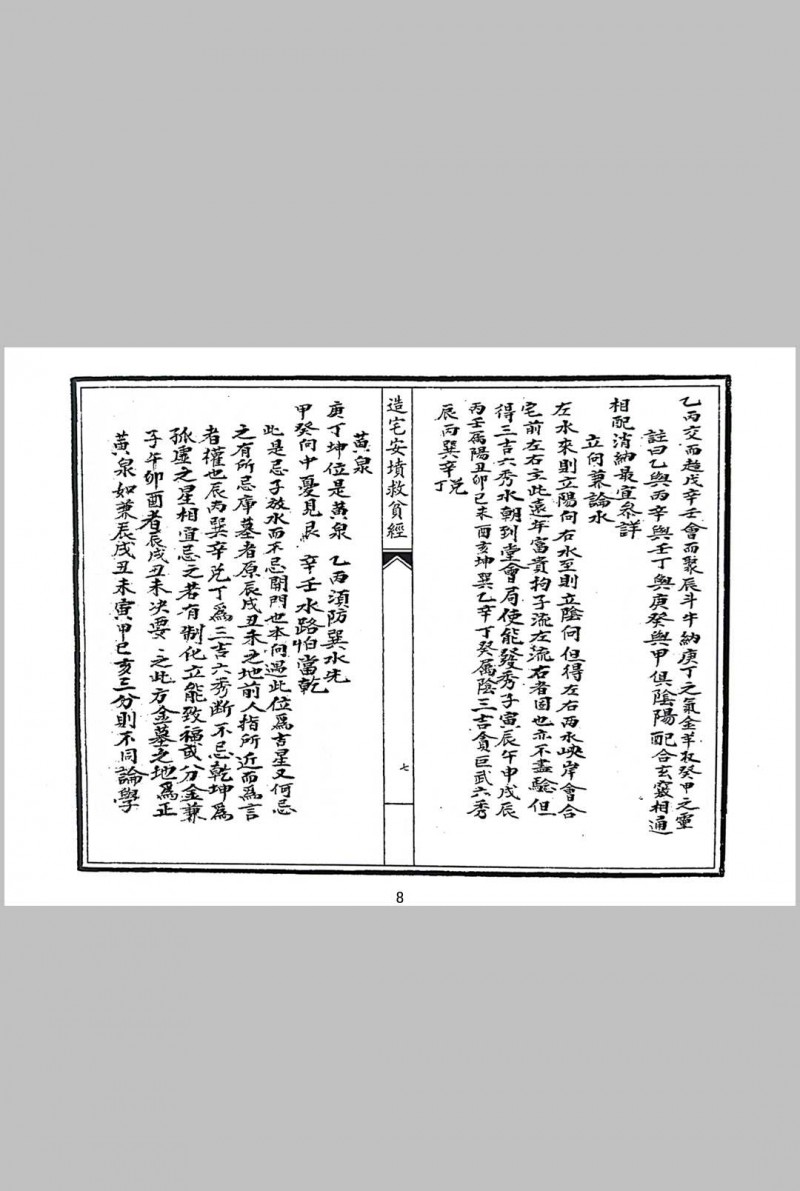 乙丙交而趨戌辛壬會而聚辰斗牛納庚丁之氣金羊收癸甲之靈
註曰乙與丙辛與壬丁與庚癸與甲俱陰陽配合玄竅相通
相配消納最宜參詳
立向兼論水
左水來則立陽向右水至則立陰向但得左右兩水峽岸會合
宅前左右主此遠年富貴拘子流左流右者固也亦不盡驗但
得三吉六秀水朝到堂會局使能發秀子寅辰午申戌辰
丙壬屬陽丑卯巳未酉亥坤巽乙辛丁癸屬陰三吉貪巨武六秀
辰丙巽辛兌丁
造宅安墳救貧經
七
黃泉
庚丁坤位是黃泉 乙丙須防巽水先
甲癸向中憂見艮 辛壬水路怕當乾
此是忌子放水而不忌開門也本向遇此位為吉星又何忌
之有所忌庫墓者原辰戌丑未之地前人指所近而為言
者權也辰丙巽辛兌丁為三吉六秀斷不忌乾坤為
孤虛之星相宜忌之若有制化立能致福或分金兼
子午卯酉者辰戌丑未決要之此方金墓之地為正
黃泉如兼辰戌丑未寅甲巳亥三分則不同論學
8